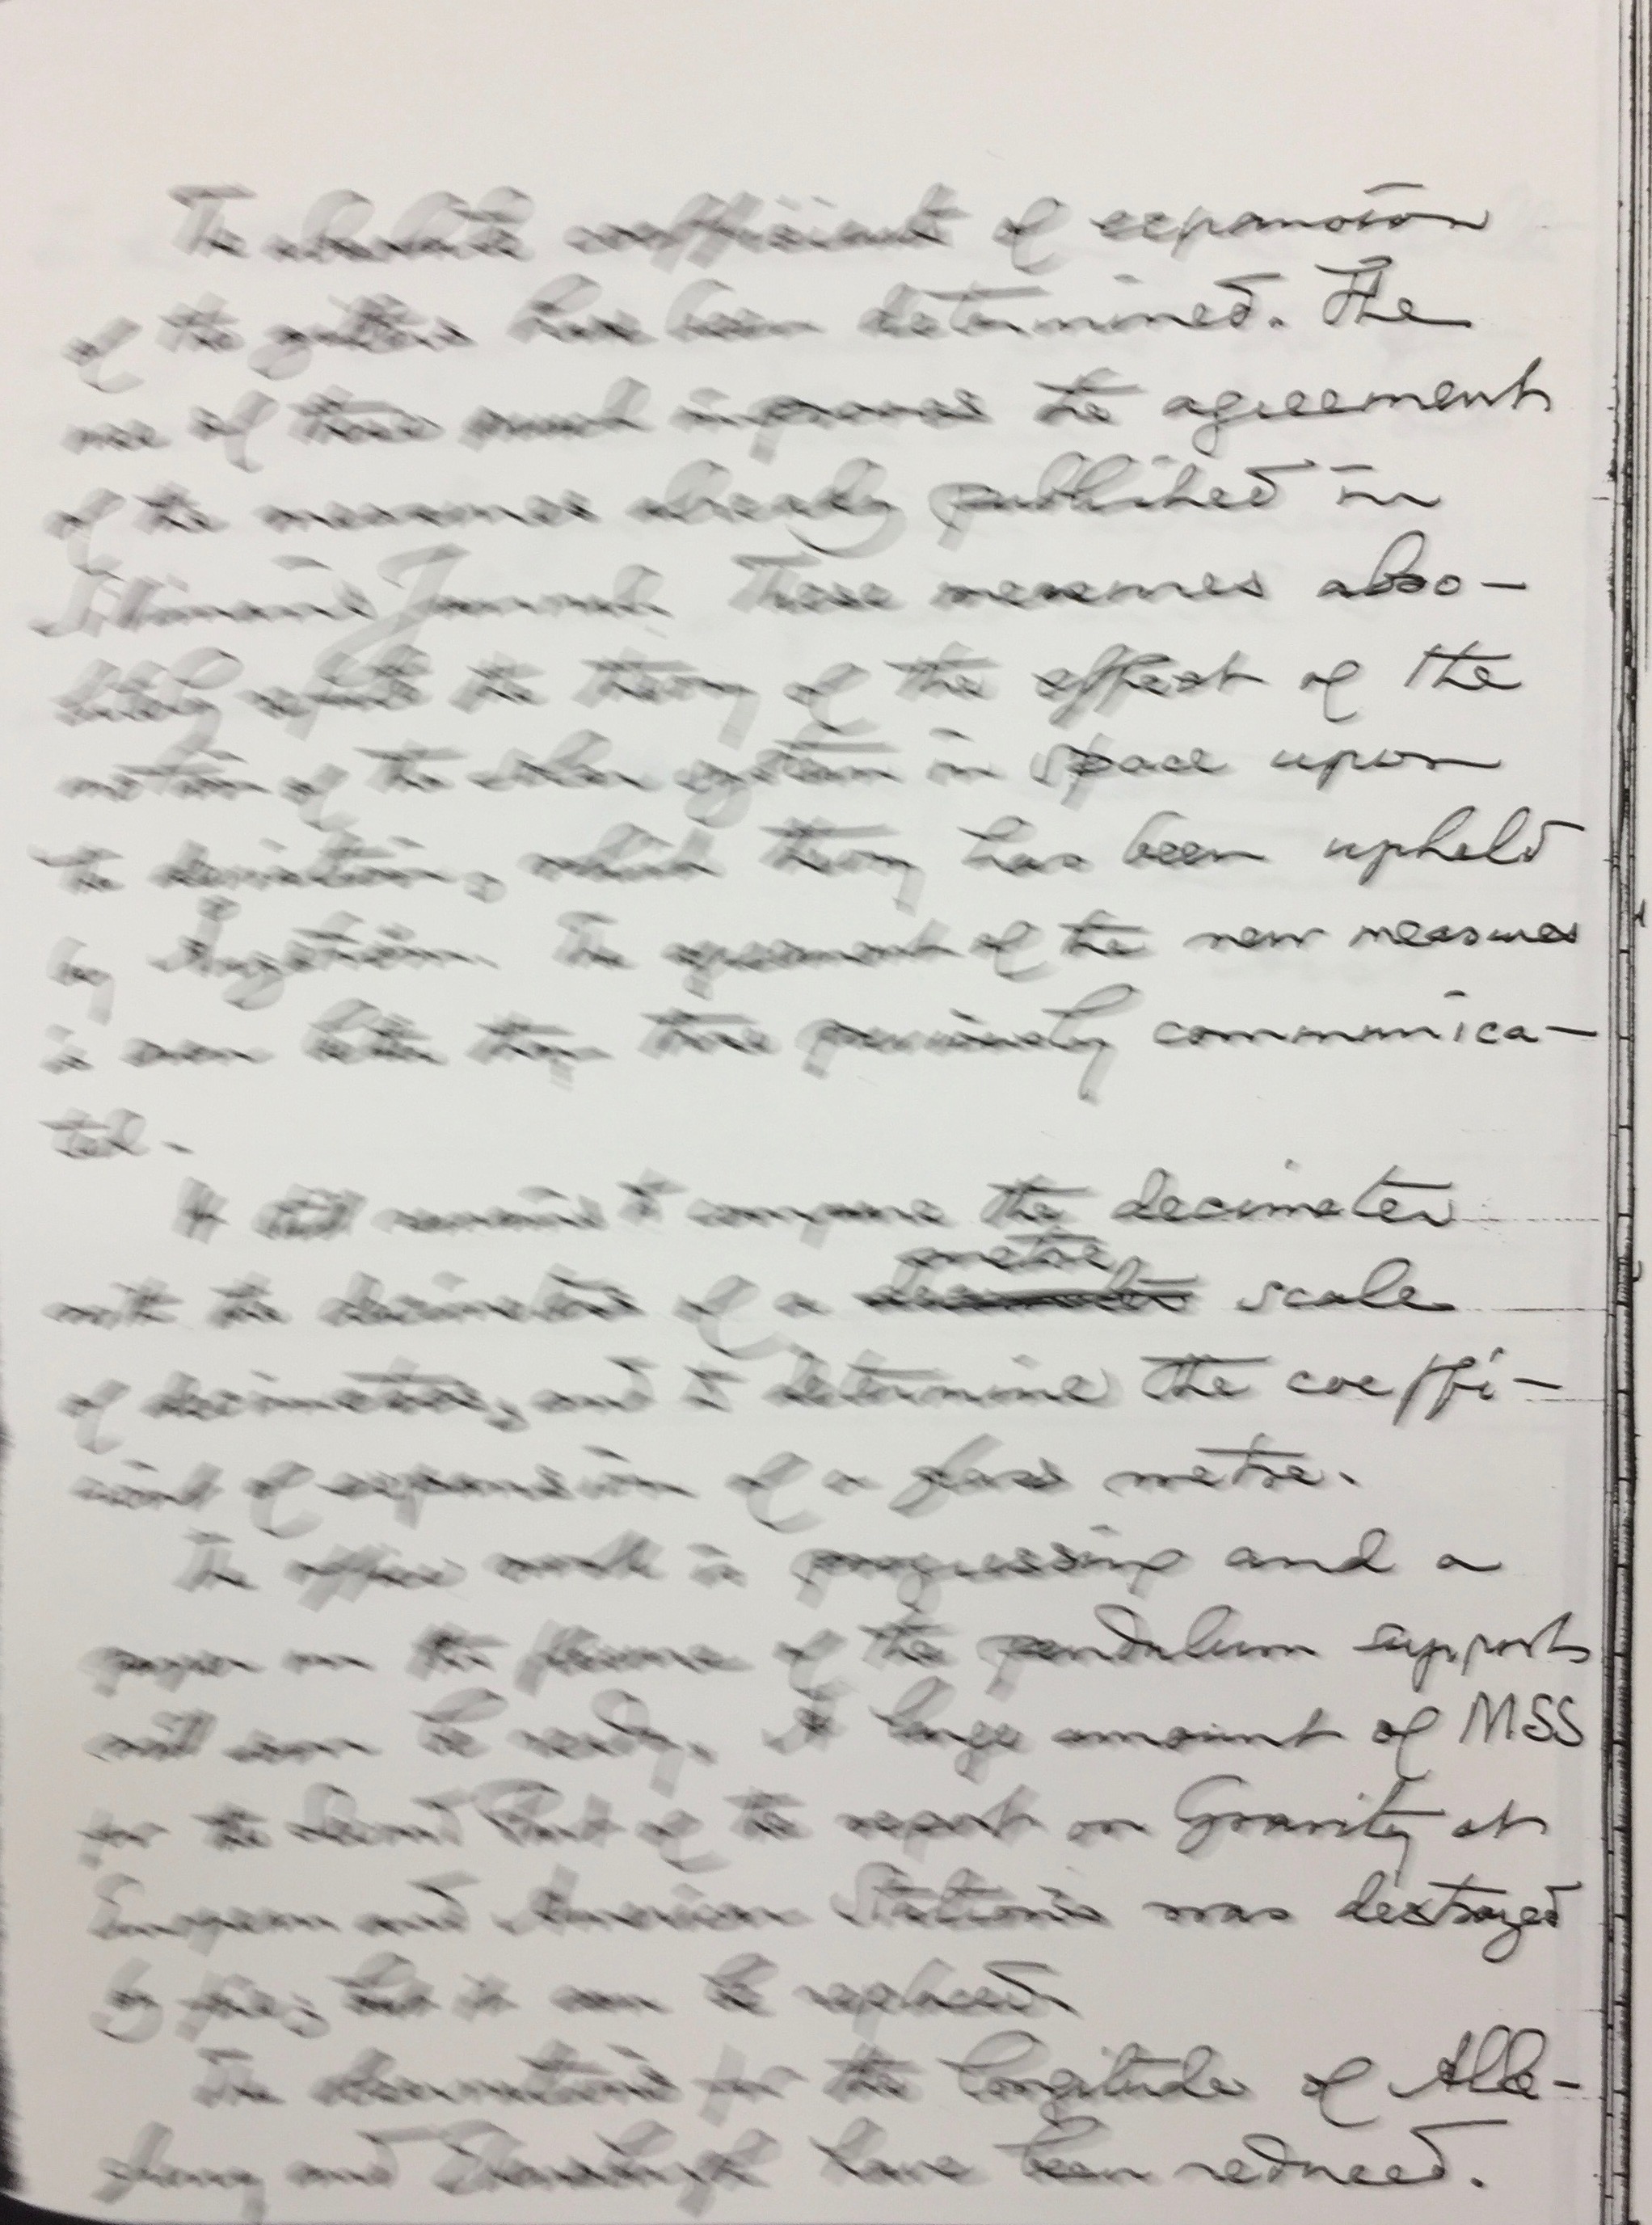 The absolute coefficients of expansion
of the gratings have been determined. The
use of these much improves the agreement
of the measures already published in
Silliman's Journal. These measures abso-
lutely refute the theory of the effect of the
motion of the solar system in space upon
the deviation, which theory has been upheld
by Angström. The agreement of the new measures
is even better than those previously communica-
ted.
It still remains to compare the decimeter
with the decimetres of a metre scale
of decimetres, and to determine the coeffi-
cient of expansion of a glass metre.
The office work is progressing and a
paper on the flexure of the pendulum supports
will soon be ready. A large amount of MSS
for the Second Part of the report on Gravity at
European and American Stations was destroyed
by fire; but it can be replaced.
The observations for the longitude of Alle-
gheny and Ebensburgh have been reduced.